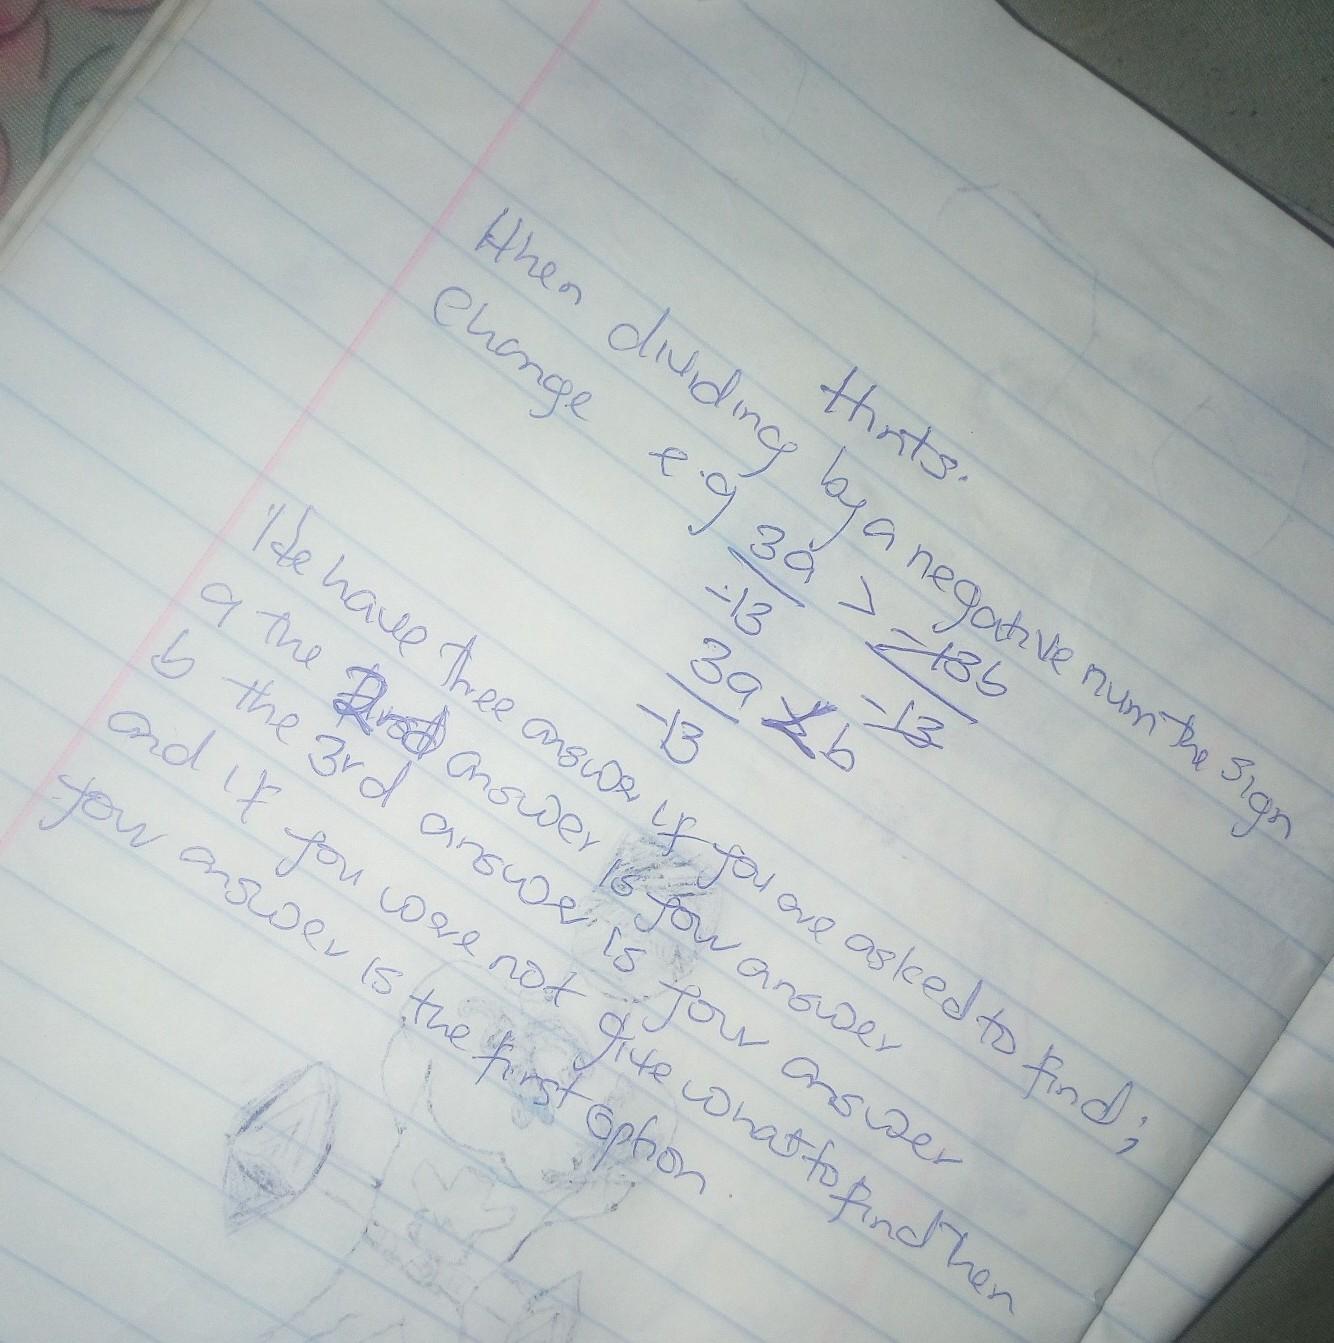 Hints.
When dividing by a negative num the sign
Change e.g 3a/-13 > -13b/-13
3a/-13 < b
We have three answer if you are asked to find;
a the answer is your answer
b the 3rd answer is your answer
and if you were not give what to find then
your answer is the first option.